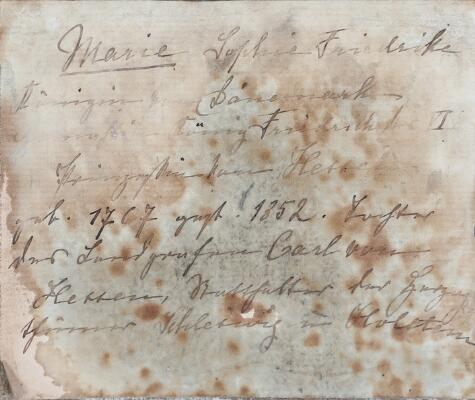 Marie Sophie Friedrike
Königin von Dänemark
König Friedrich VI
Prinzessin von Hessen
geb. 1767 gest. 1852. Tochter
des Landgrafen Carl von
Hessen, Statthalter der Herzog
thümer Schleswig u Holstein